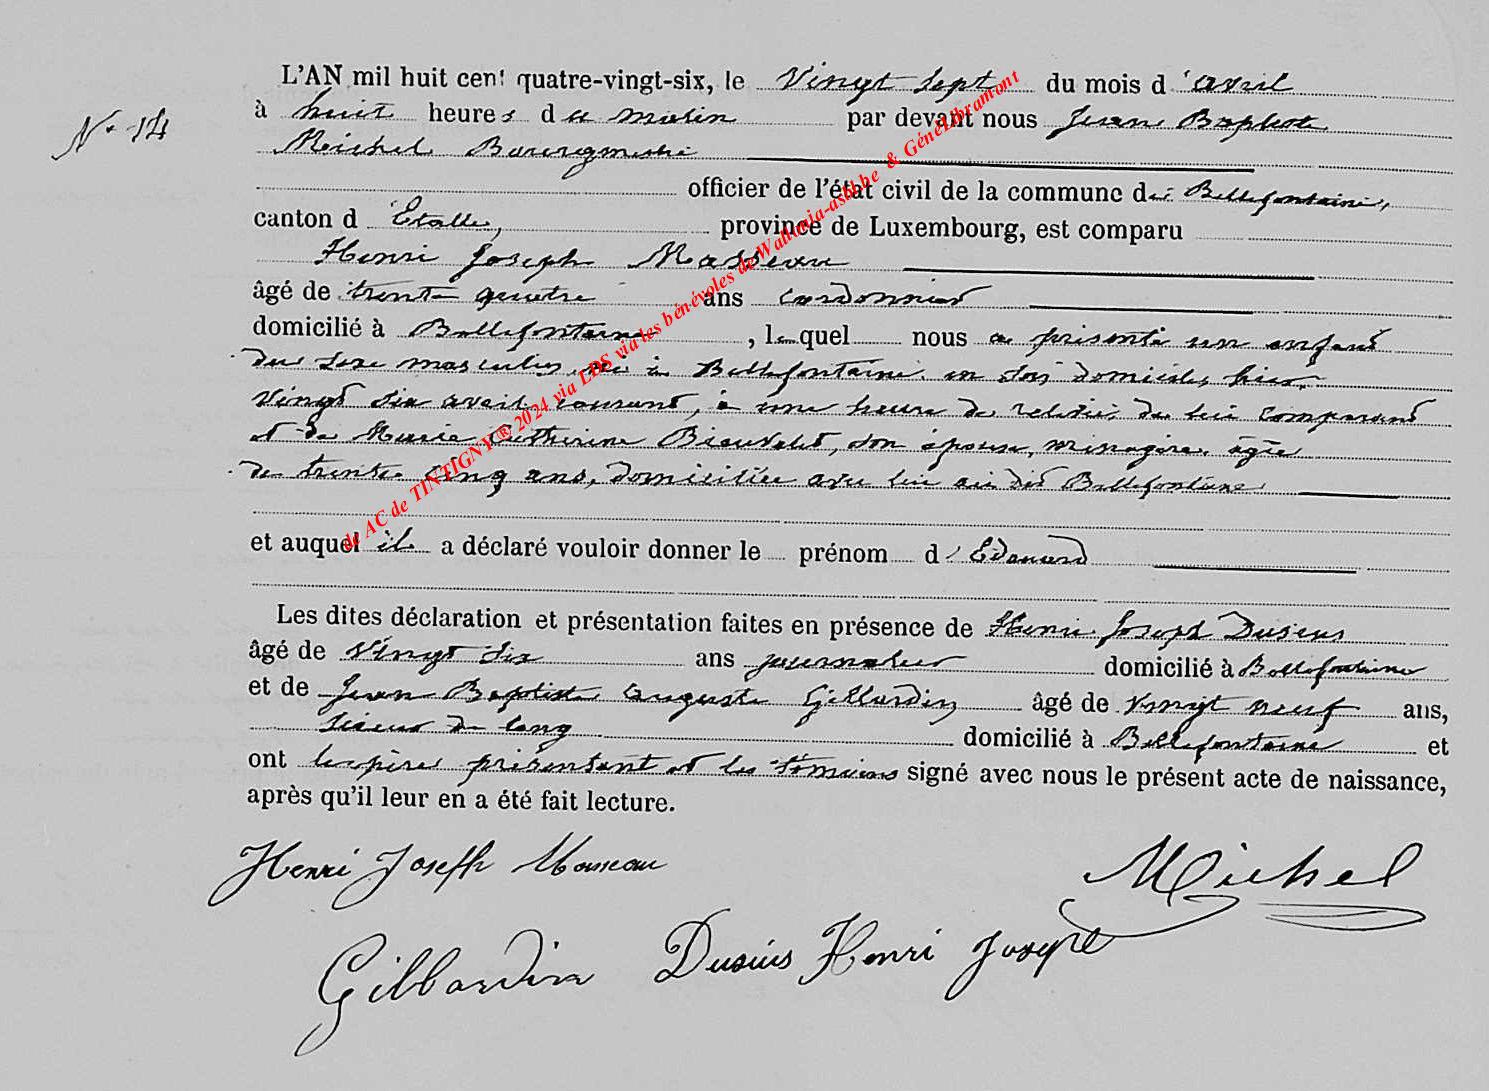 L'AN mil huit cent quatre-vingt-six, le Vingt sept du mois d'avril
N° 14
à huit heures du matin par devant nous Jean Baptiste
Michel Bourgmestre
officier de l'état civil de la commune de Bellefontaine,
canton d'Etalle, province de Luxembourg, est comparu
Henri Joseph Masseau
âgé de trente quatre ans cordonnier
domicilié à Bellefontaine, lequel nous a présenté un enfant
du sexe masculin, né à Bellefontaine en son domicile, hier
Vingt six avril courant, à une heure de relevée de lui comparant
et de Marie Catherine Beauvalet, son épouse, ménagère, âgée
de trente cinq ans, domiciliée avec lui au dit Bellefontaine
et auquel il a déclaré vouloir donner le prénom d'Edouard
Les dites déclaration et présentation faites en présence de Henri Joseph Dusius
âgé de Vingt six ans journalier domicilié à Bellefontaine
et de Jean Baptiste Auguste Gillardin âgé de Vingt neuf ans,
scieur de long domicilié à Bellefontaine et
ont le père présentant et les témoins signé avec nous le présent acte de naissance,
après qu'il leur en a été fait lecture.
Henri Joseph Masseau
Michel
Gillardin Dusius Henri Joseph
de AC de TINTIGNY® 2024 via LDS via les bénévoles de Wallonia-asbl.be & GénéLibramont